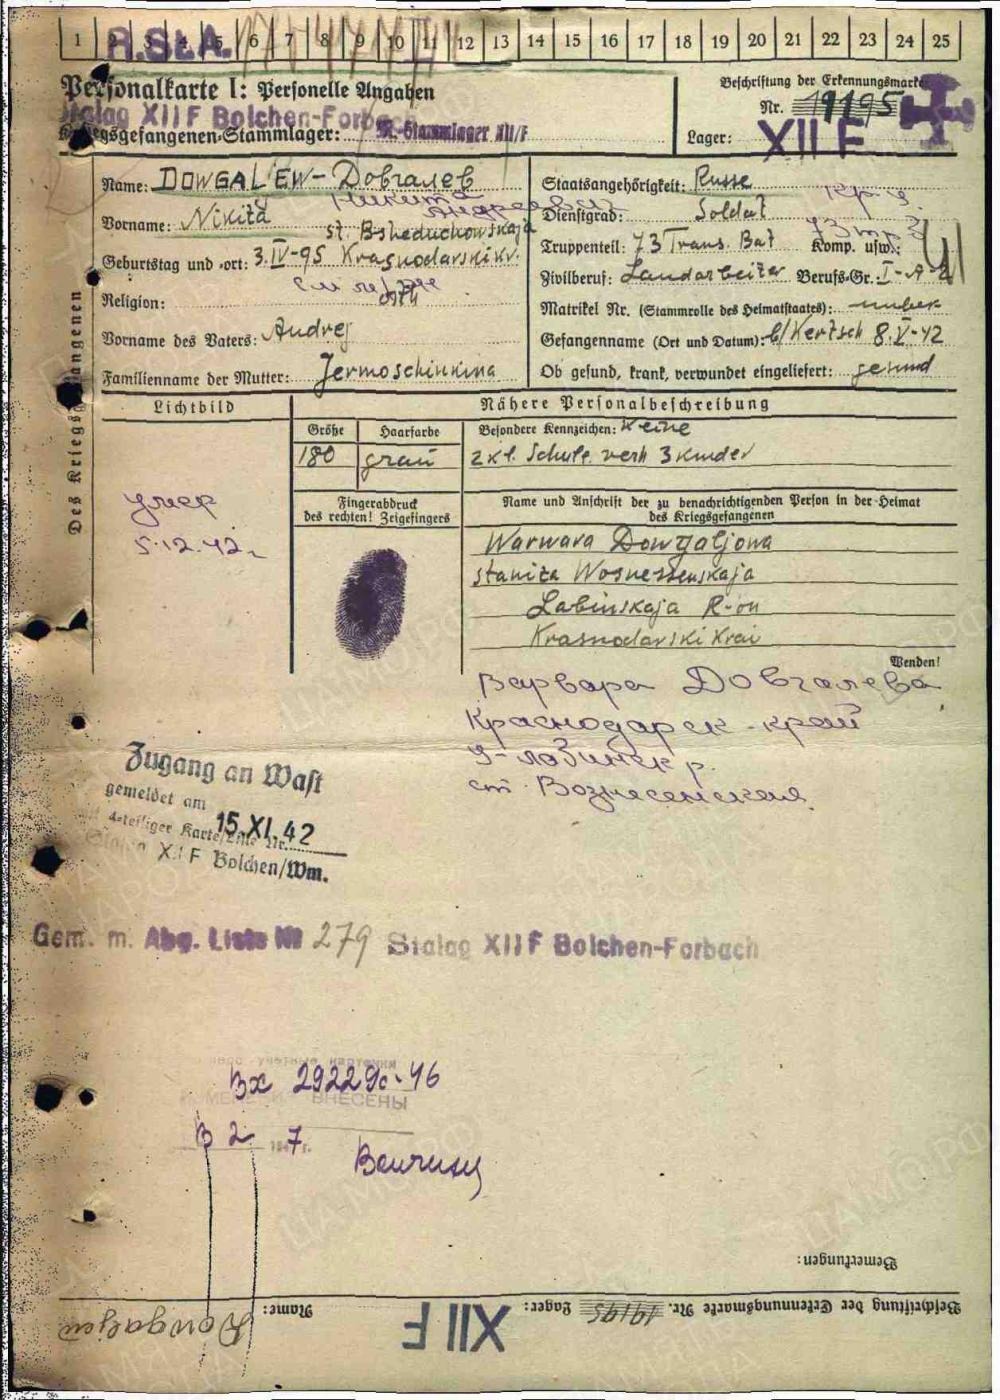 1 2 3 4 5 6 7 8 9 10 11 12 13 14 15 16 17 18 19 20 21 22 23 24 25
R.StA.
Personalkarte I: Personelle Angaben
Stalag XII F Bolchen-Forbach
Kriegsgefangenen-Stammlager: M.-Stammlager XII/F
Beschriftung der Erkennungsmarke
Nr. 19195
Lager: XII F
Name: DOWGAL'EW - Довгалев
Никита Андреевич
Vorname: Nikita
st. Bsheduchowskaja
Geburtstag und -ort: 3.IV-95 Krasnodarski kr.
Religion: orth
Vorname des Vaters: Andrej
Familienname der Mutter: Jermoschinkina
Staatsangehörigkeit: Russe
Dienstgrad: Soldat
Truppenteil: 73 Trans. Bat Komp. usw.:
Zivilberuf: Landarbeiter Berufs-Gr.: I-A-2
Matrikel Nr. (Stammrolle des Heimatstaates): unbek
Gefangennahme (Ort und Datum): b/Kertsch 8.V-42
Ob gesund, krank, verwundet eingeliefert: gesund
Des Kriegsgefangenen
Lichtbild
Nähere Personalbeschreibung
Größe Haarfarbe Besondere Kennzeichen: Keine
180 grau 2 kl. Schule verh 3 Kinder
Fingerabdruck
des rechten! Zeigefingers
Name und Anschrift der zu benachrichtigenden Person in der Heimat
des Kriegsgefangenen
умер
5.12.42 г
Warwara Dowgaljowa
staniza Wosnessenskaja
Labinskaja R-on
Krasnodarski Krai
Wenden!
Варвара Довгалева
Краснодарск-край
У-лабинск р.
ст. Вознесенская
Zugang an Wast
gemeldet am
15.XI.42
4-teiliger Karte/Liste Nr.
Stalag XII F Bolchen/Wm.
Gem. m. Abg. Liste № 279 Stalag XII F Bolchen-Forbach
учетные карточки
Вх 29229с-46
ВНЕСЕНЫ
В 2 1947 г.
Bemerkungen:
Beschriftung der Erkennungsmarke Nr. 19195 Lager: XII F Name: Dowgaljew